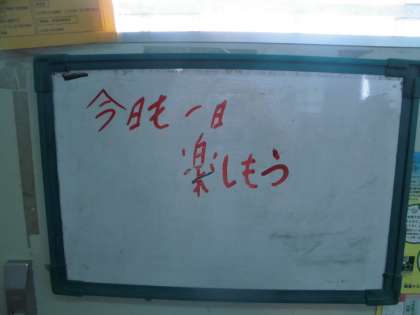 今日も一日
楽しもう